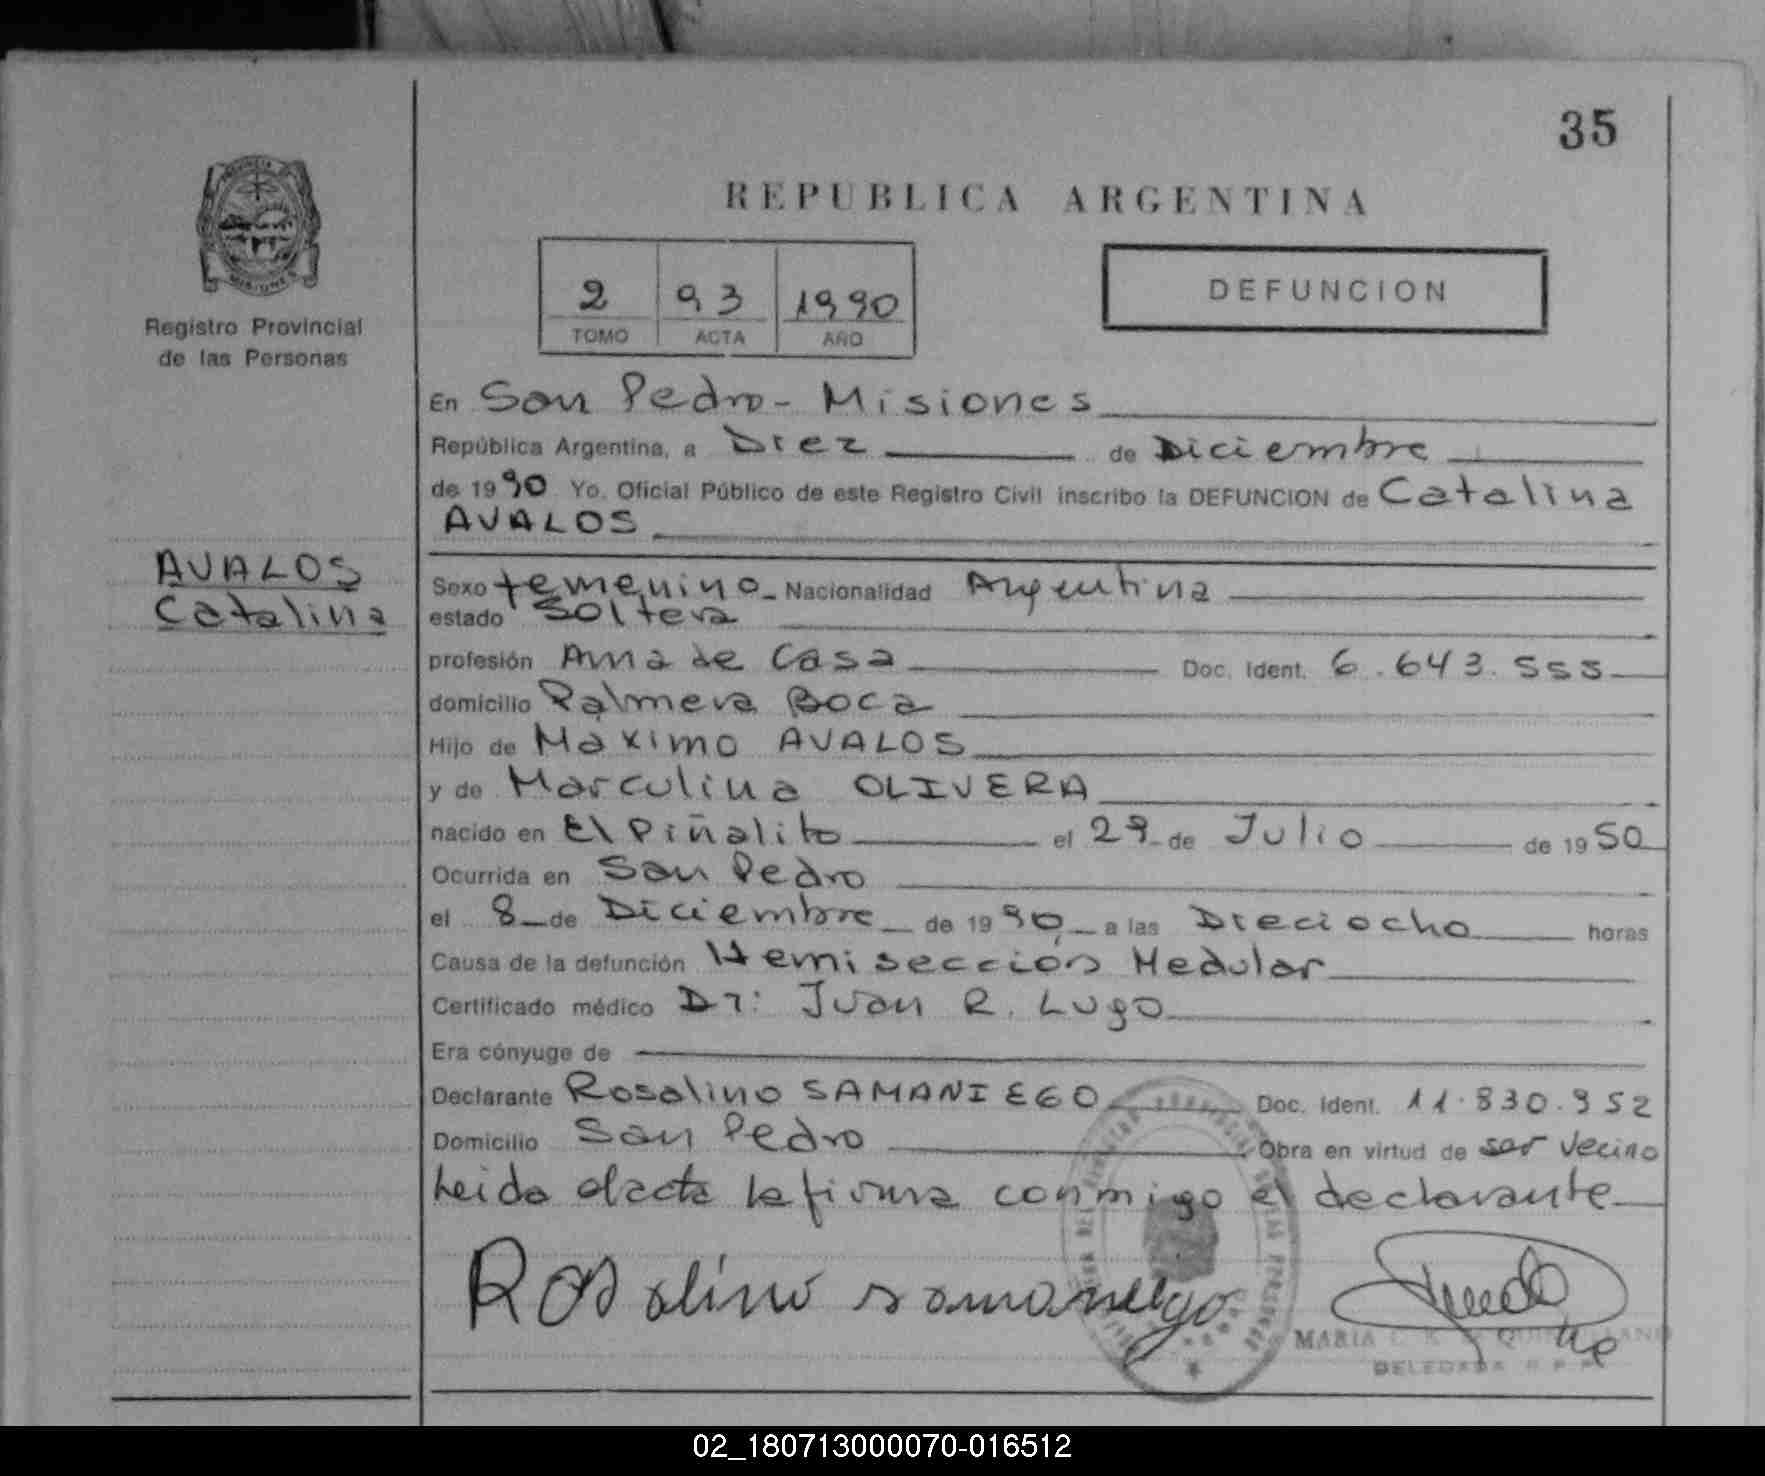 35
REPUBLICA ARGENTINA
PROVINCIA
MISIONES
Registro Provincial
de las Personas
2 93 1990
TOMO ACTA AÑO
DEFUNCION
En San Pedro - Misiones
República Argentina, a Diez de Diciembre
de 1990 Yo, Oficial Público de este Registro Civil inscribo la DEFUNCION de Catalina
AVALOS
AVALOS
Catalina
Sexo femenino Nacionalidad Argentina
estado Soltera
profesión Ama de Casa Doc. Ident. 6.643.555
domicilio Palmera Boca
Hijo de Maximo AVALOS
y de Marculina OLIVERA
nacido en El Piñalito el 29 de Julio de 1950
Ocurrida en San Pedro
el 8 de Diciembre de 1990 a las Dieciocho horas
Causa de la defunción Hemisección Medular
Certificado médico Dr: Juan R. Lugo
Era cónyuge de
Declarante Rosalino SAMANIEGO Doc. Ident. 11.830.952
Domicilio San Pedro Obra en virtud de ser vecino
Leida el acta la firma conmigo el declarante
Rosalino samaniego
MARIA C. R.
DELEGADA
02_180713000070-016512